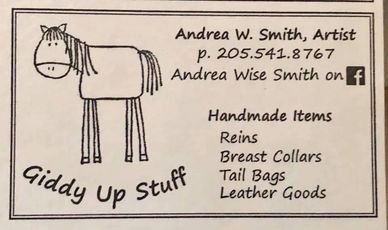 Andrea W. Smith, Artist
p. 205.541.8767
Andrea Wise Smith on f
Handmade Items
Reins
Breast Collars
Tail Bags
Leather Goods
Giddy Up Stuff